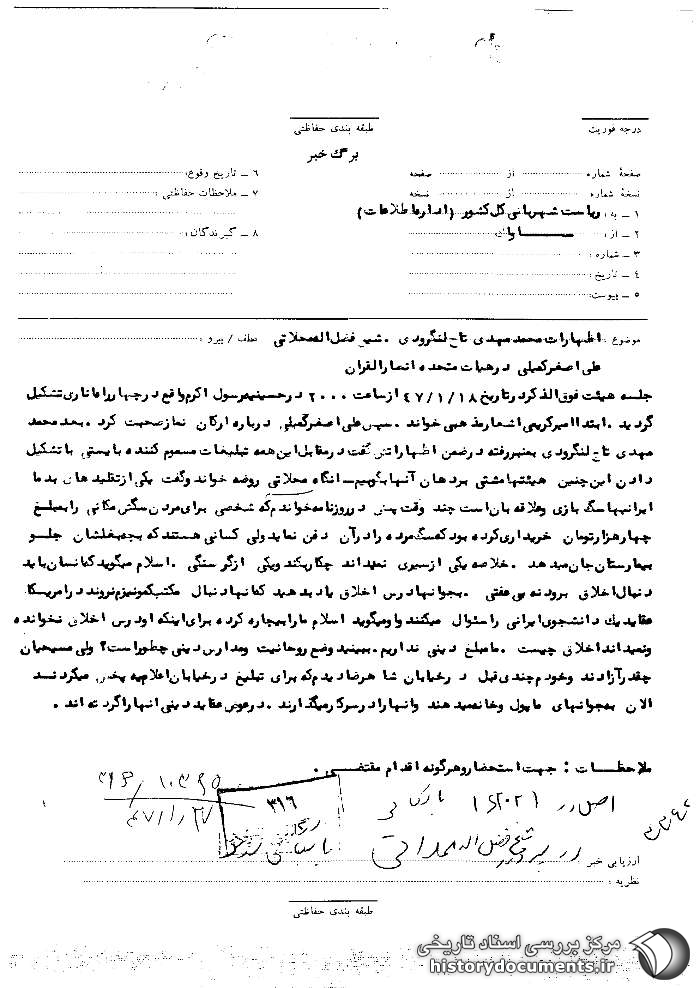 طبقه بندی حفاظتی
درجه فوریت
برگ خبر
صفحهٔ شماره از صفحه
۶ ــ تاریخ وقوع:
نسخهٔ شماره از نسخه
۷ ــ ملاحظات حفاظتی :
۱ ــ به : ریاست شهربانی کل کشور (اداره اطلاعات)
۲ ــ از : ســـاواک
۸ ــ گیرندگان :
۳ ــ شماره :
۴ ــ تاریخ :
۵ ــ پیوست:
موضوع : اظهارات محمد مهدی تاج لنگرودی . شیخ فضل اله محلاتی عطف / پیرو :
علی اصغر کمیلی در هیات متحده انصار القران
جلسه هیئت فوق الذکر در تاریخ ۴۷/۱/۱۸ از ساعت ۲۰۰۰ در حسینیه رسول اکرم واقع در چهارراه اناری تشکیل
گردید . ابتدا امیر کریمی اشعار مذهبی خواند . سپس علی اصغر کمیلی درباره ارکان نماز صحبت کرد . بعد محمد
مهدی تاج لنگرودی بمنبر رفته در ضمن اظهاراتش گفت در مقابل این همه تبلیغات مسموم کننده بایستی با تشکیل
دادن این چنین هیئتها مشتی بر دهان آنها بکوبیم ــ انگاه محلاتی روضه خواند و گفت یکی از تقلیدهای بد ما
ایرانیها سگ بازی و علاقه بان است چند وقت پیش در روزنامه خواندم که شخصی برای مردن سگش مکانی را بمبلغ
چهار هزار تومان خریداری کرده بود که سگ مرده را در آن دفن نماید ولی کسانی هستند که بچه بغلشان جلو
بیمارستان جان میدهد . خلاصه یکی از سیری نمیداند چکار بکند و یکی از گرسنگی . اسلام میگوید که انسان باید
دنبال اخلاق برود نه بی عفتی . بجوانها درس اخلاق یاد بدهید که انها دنبال مکتب کمونیزم نروند در امریکا
عقاید یک دانشجوی ایرانی را سئوال میکنند او میگوید اسلام ما را بیچاره کرده برای اینکه او درس اخلاق نخوانده
و نمیداند اخلاق چیست . ما مبلغ دینی نداریم . ببینید وضع روحانیت و مدارس دینی چطور است؟ ولی مسیحیان
چقدر آزادند و خودم چندی قبل در خیابان شاهرضا دیدم که برای تبلیغ در خیابان اعلامیه پخش میکردنــد
الان به جوانهای ما پول و خانه میدهند و انها را در سر کار میگذارند . در عوض عقاید دینی انها را گرفته اند .
ملاحظـــات : جهت استحضار و هر گونه اقدام مقتضـــی .
۴۷/۱/۲۷
۳۱۶
اصل در
در پرونده شیخ فضل اله محلاتی
ارزیابی خبر
نظریه :
طبقه بندی حفاظتی
مرکز بررسی اسناد تاریخی
historydocuments.ir